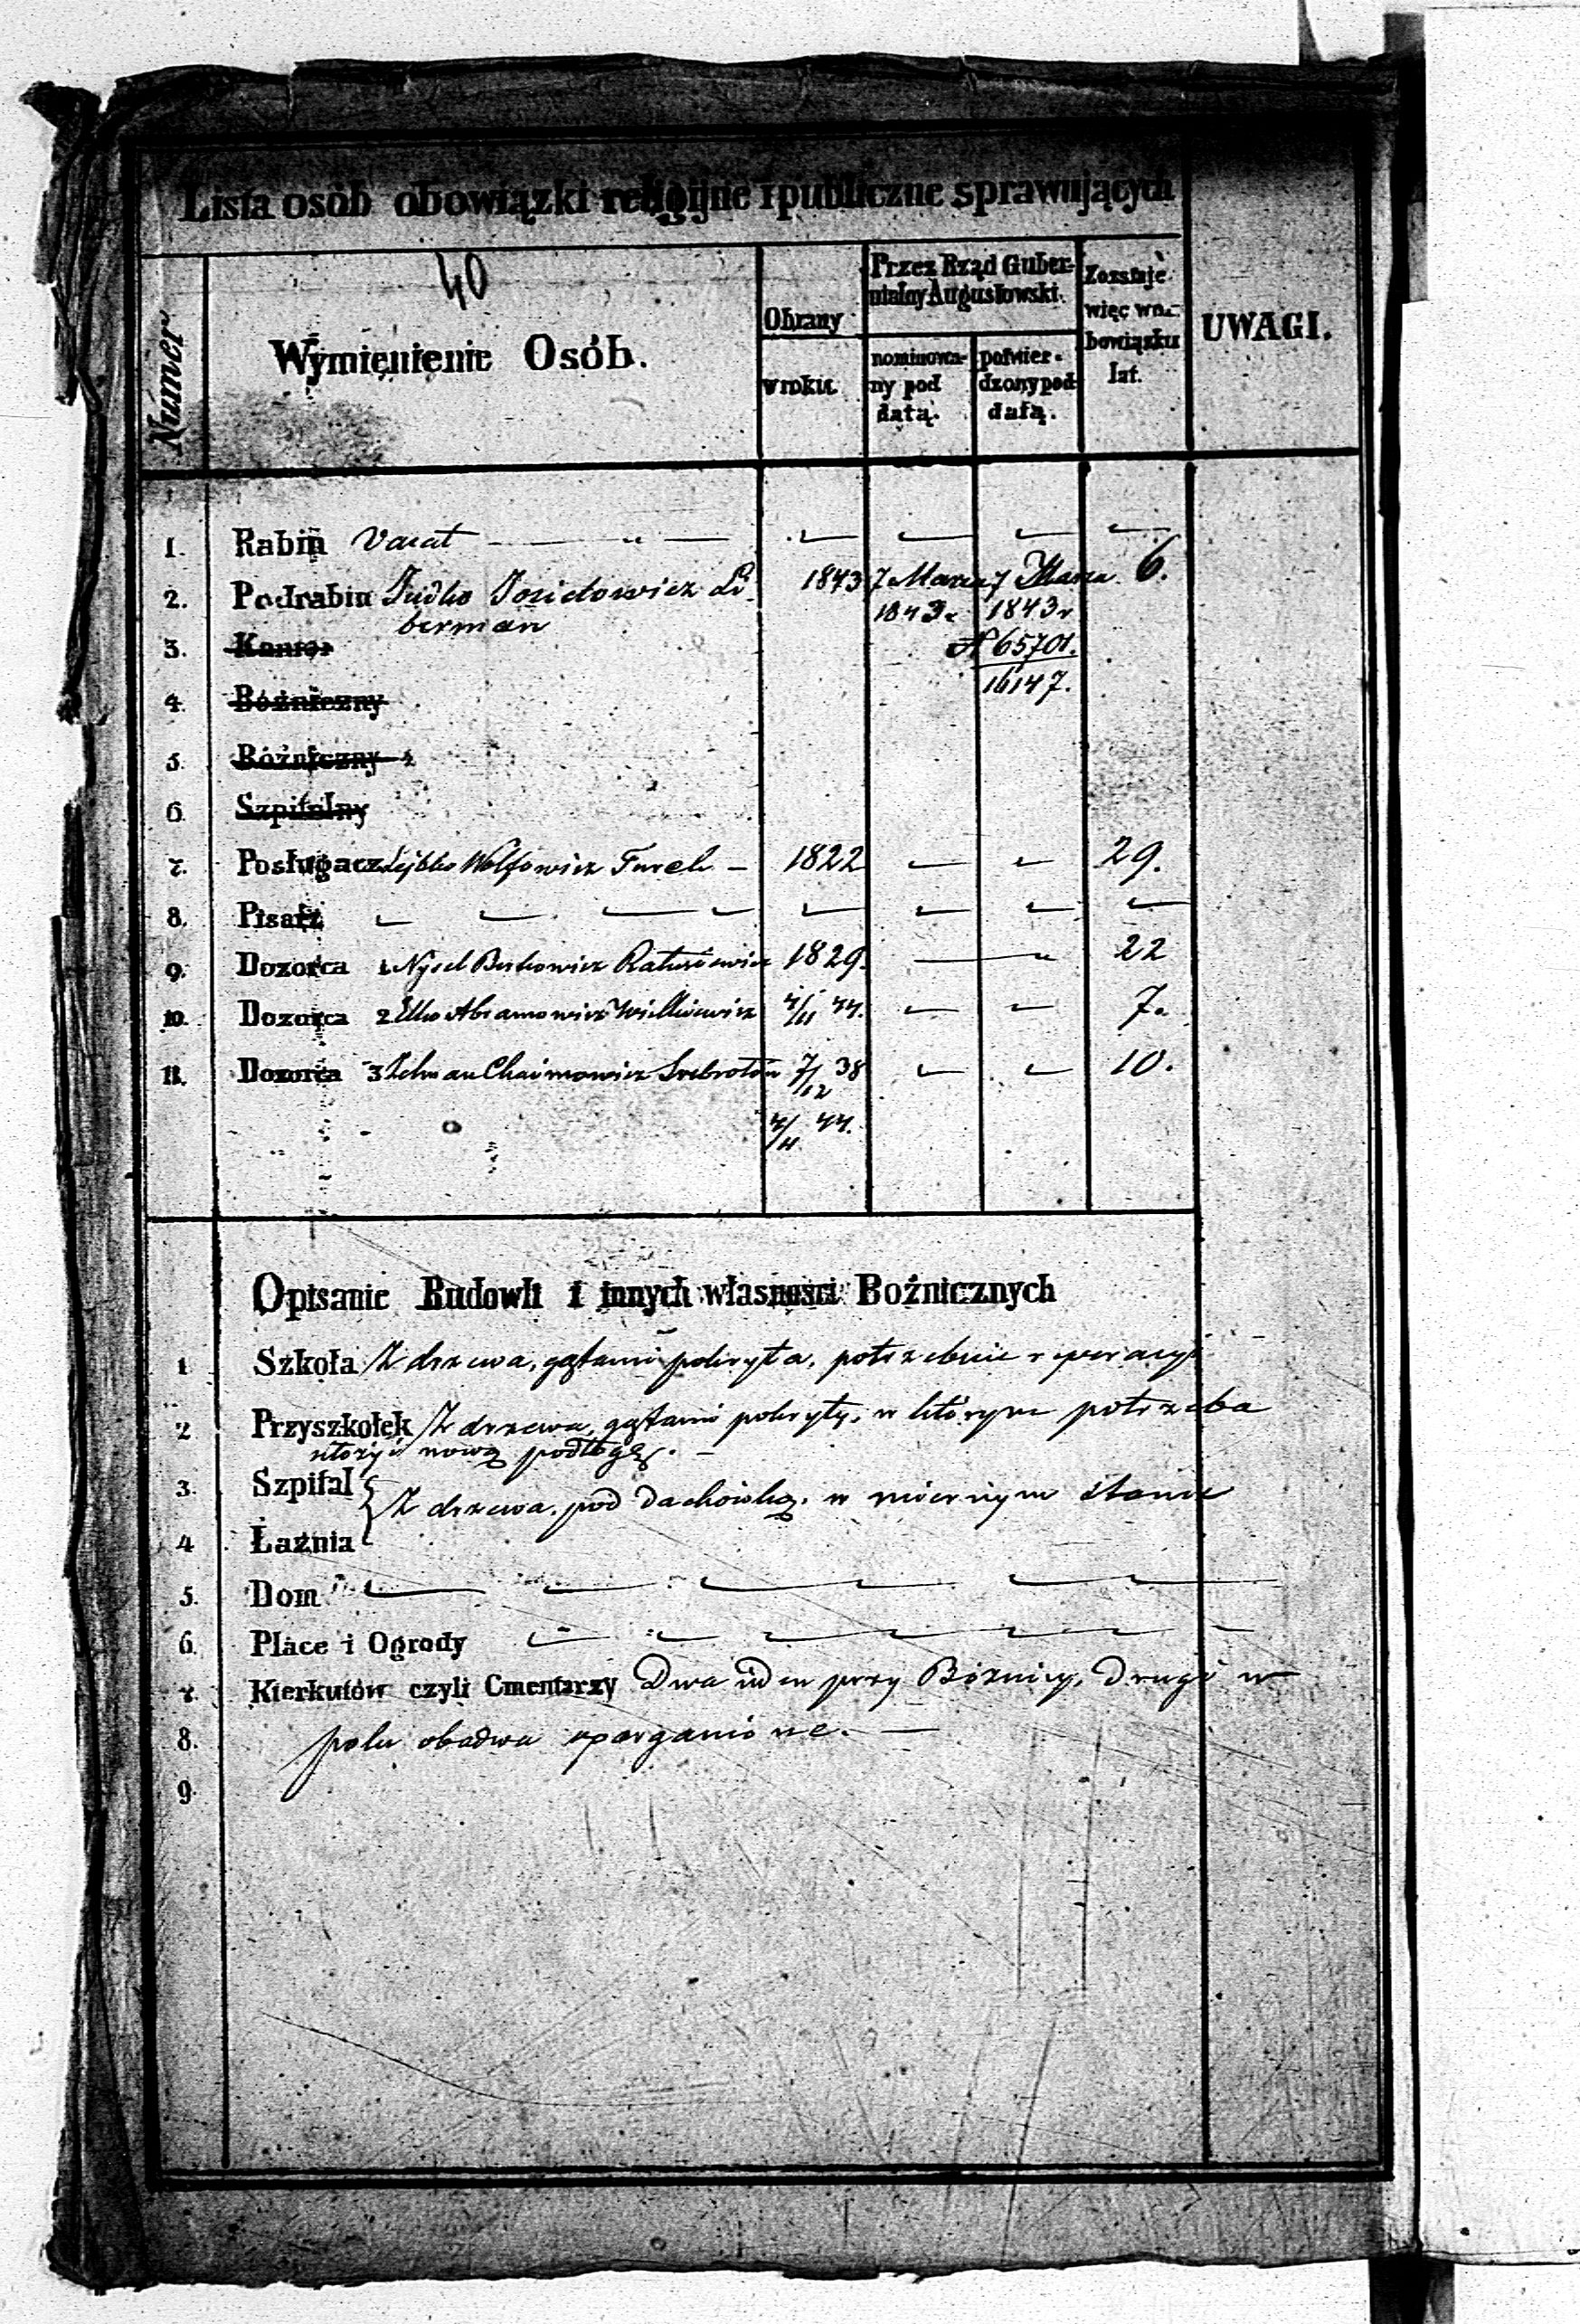 Lista osób obowiązki religijne i publiczne sprawujących
40
Numer
Wymienienie Osób.
Obrany
w roku.
Przez Rząd Guber-
nialny Augustowski.
nominowa-
ny pod
datą.
potwier-
dzony pod
datą.
Zostaje
więc w o-
bowiązku
lat.
UWAGI.
1. Rabin Vacat
2. Podrabin Judko Josielowicz Li- 1843 7 Marca 7 Marca 6.
berman 1843 r 1843 r
3. Kantor N 65701.
16147.
4. Bóżniczny
5. Bóżniczny
6 Szpitalny
7. Posługacz Lejbko Wolfowicz Turek 1822 29.
8. Pisarz
9. Dozorca 1 Berkowicz 1829. 22
10. Dozorca 2 Elko Abramowicz 4/11 44. 7.
11. Dozorca 3 Zelman Chaimowicz 7/12 38 10.
4/11 44.
Opisanie Budowli i innych własności Bożnicznych
1 Szkoła Z drzewa, gątami pokryta, potrzebuie reperacyi
2 Przyszkołek Z drzewa, gątami pokryty, w którym potrzeba
ułożyć nową podłogę.
3. Szpital
Z drzewa pod dachówką. w miernym stanie
4 Łaźnia
5. Dom
6. Place i Ogrody
7. Kierkutów czyli Cmentarzy Dwa ieden przy Bóżnicy, drugi w
8. polu obadwa oparganione.
9.